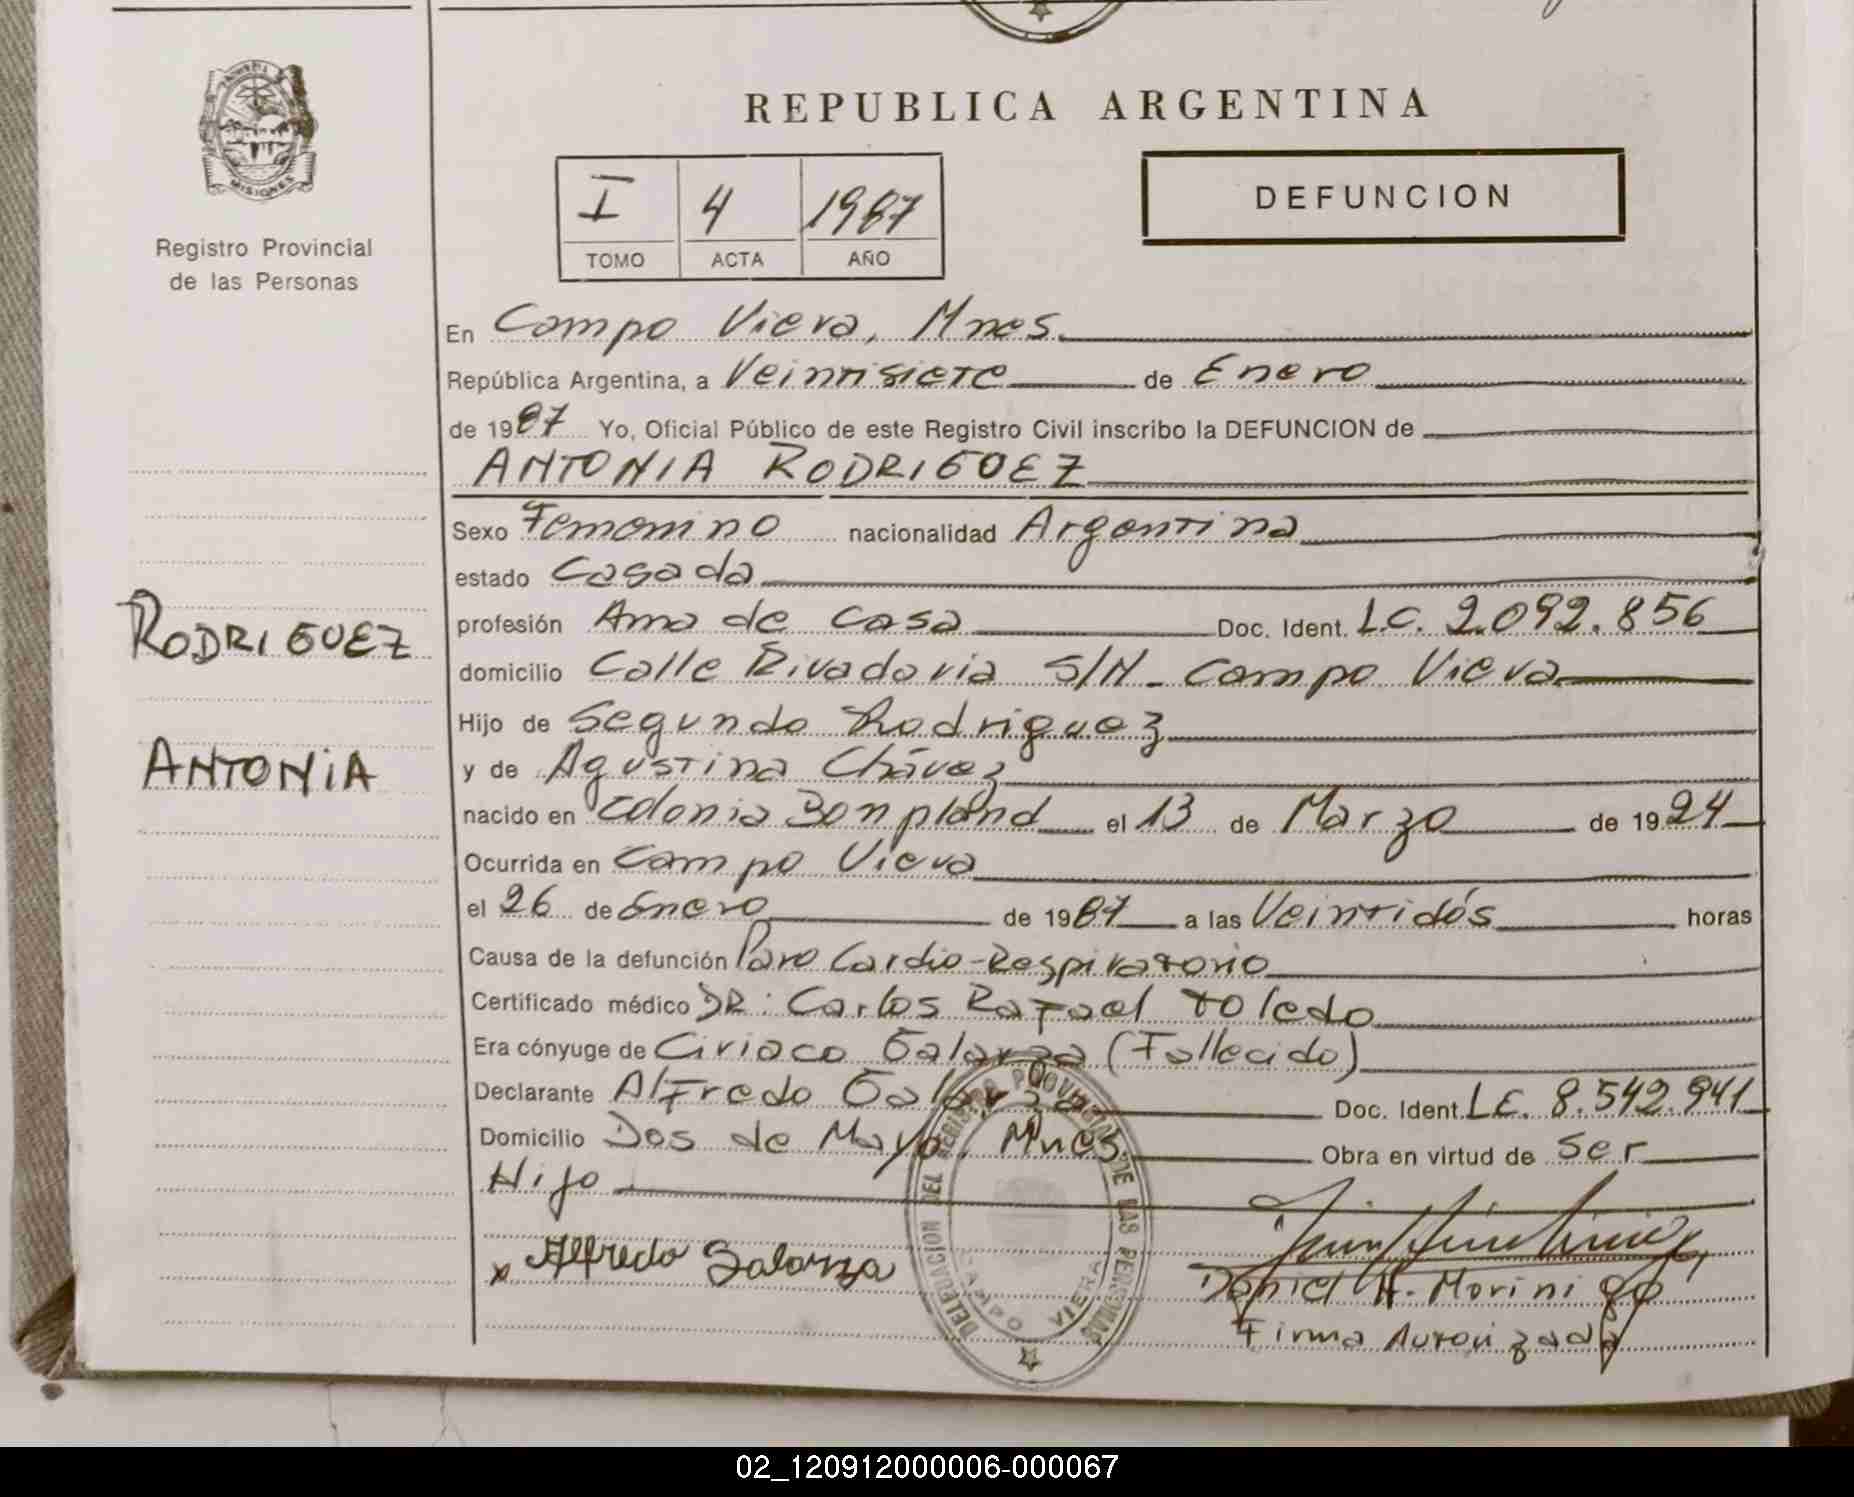 REPUBLICA ARGENTINA
MISIONES
Registro Provincial
de las Personas
I 4 1987
TOMO ACTA AÑO
DEFUNCION
En Campo Viera, Mnes.
República Argentina, a Veintisiete de Enero
de 1987 Yo, Oficial Público de este Registro Civil inscribo la DEFUNCION de
ANTONIA RODRIGUEZ
Sexo Femenino nacionalidad Argentina
estado Casada
profesión Ama de Casa Doc. Ident. L.C. 2.092.856
domicilio Calle Rivadavia S/N - Campo Viera
Hijo de Segundo Rodriguez
y de Agustina Chávez
nacido en Colonia Bonpland el 13 de Marzo de 1924
Ocurrida en Campo Viera
el 26 de Enero de 1987 a las Veintidós horas
Causa de la defunción Paro Cardio-Respiratorio
Certificado médico DR: Carlos Rafael Toledo
Era cónyuge de Ciriaco Galarza (Fallecido)
Declarante Alfredo Galarza Doc. Ident. L.E. 8.542.941
Domicilio Dos de Mayo, Mnes. Obra en virtud de Ser
Hijo
x Alfredo Galarza
Daniel H. Morinigo
Firma Autorizada
RODRIGUEZ
ANTONIA
DELEGACION DEL REGISTRO PROVINCIAL DE LAS PERSONAS
CAMPO VIERA
02_120912000006-000067